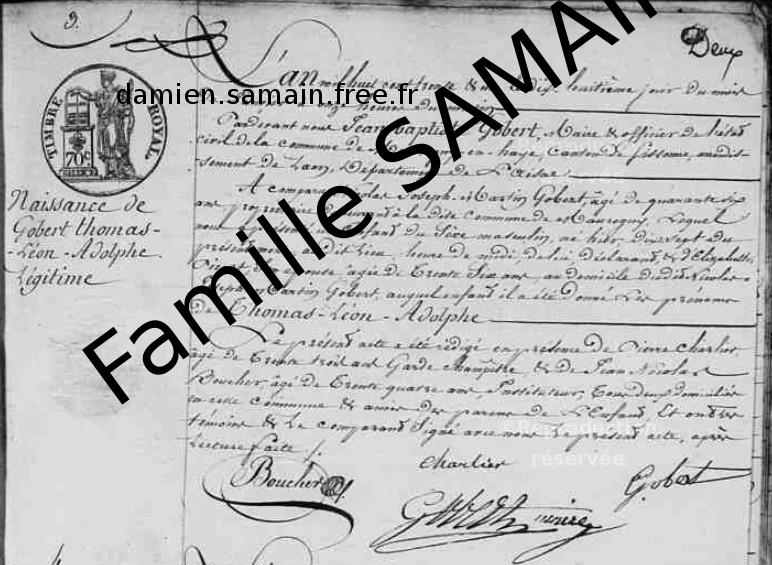 3.
Deux
TIMBRE ROYAL
70c
Naissance de
Gobert thomas-
-Léon-Adolphe.
Légitime
L'an mil huit cent trente & dix-huitième jour du mois
heures du matin
Pardevant nous Jean Baptiste Gobert, Maire & officier de l'état
civil de la commune de en-haye, canton de Sissonne, arrondis-
-sement de Laon, Département de L'Aisne
A comparu Nicolas Joseph-Martin Gobert, âgé de quarante six
ans, propriétaire, demeurant à la dite commune de Mauregny, Lequel
nous a présenté un Enfant du Sexe masculin, né hier dix sept du
présent mois, audit Lieu, heure de midi, de lui déclarant, & d'Elizabeth
son épouse, agée de Trente Six ans, au domicile dudit Nicolas-
Joseph-Martin Gobert, auquel enfant il a été Donné Les prénoms
de Thomas-Léon-Adolphe
Le présent acte a été rédigé en présence de Pierre Charlier,
agé de Trente trois ans Garde Champêtre, & de Jean Nicolas
Boucher, âgé de Trente quatre ans, Instituteur, Tous deux domiciliés
en cette commune & amis des parens de L'Enfant, Et ont les
témoins & Le comparant Signé avec nous Le présent acte, après
Lecture faite ./.
Charlier
Boucher
Gobert
Gobert maire
damien.samain.free.fr
Famille SAMAIN
© Reproduction
réservée